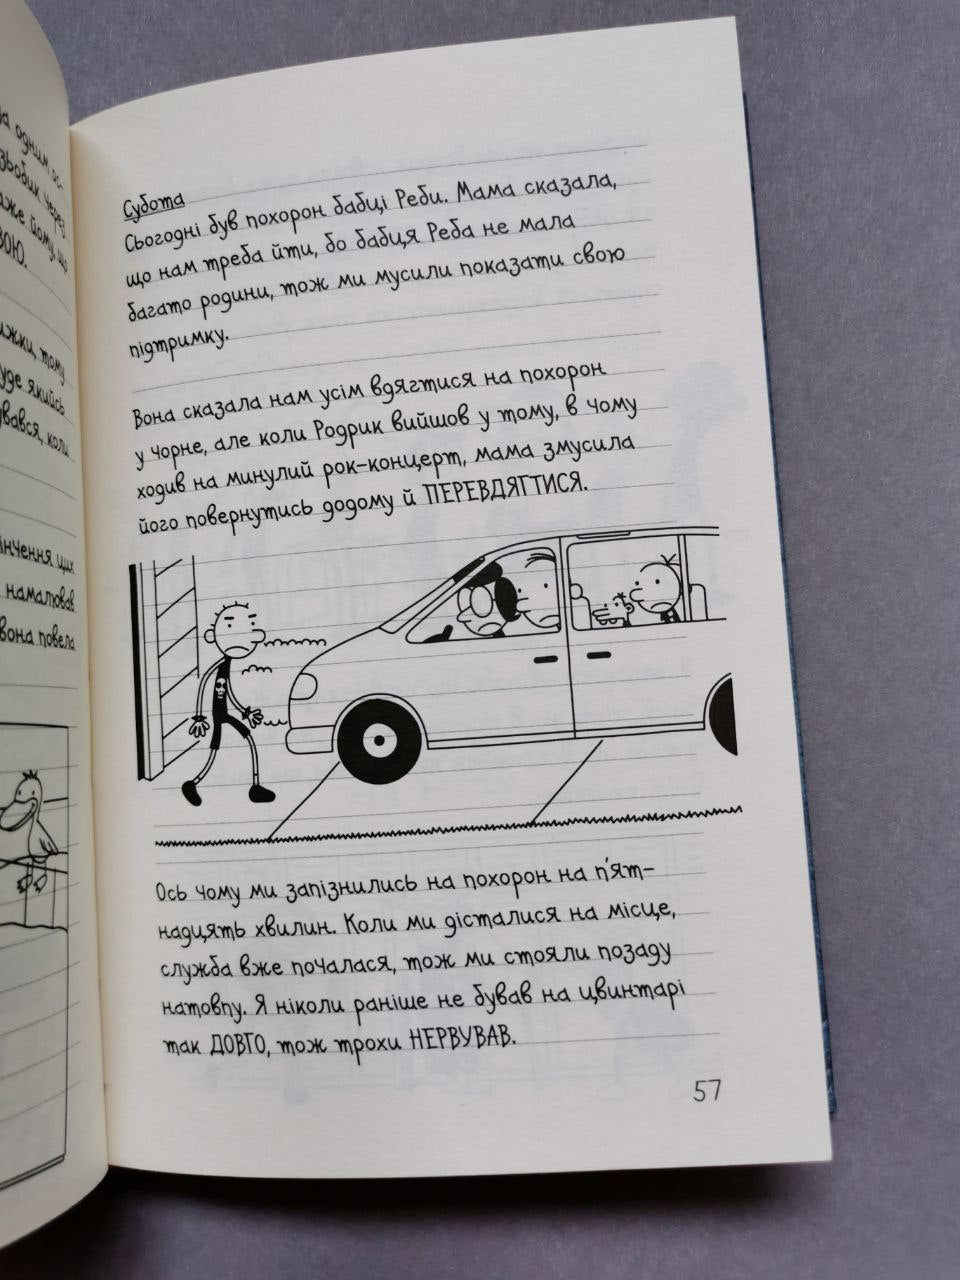 а одним ос-
зьобик через
же йому, що
ВОЮ.
ижки, тому
уде якийсь
вався, коли
інчення цих
намалював
вона повела
Субота
Сьогодні був похорон бабці Реби. Мама сказала,
що нам треба йти, бо бабця Реба не мала
багато родини, тож ми мусили показати свою
підтримку.
Вона сказала нам усім вдягтися на похорон
у чорне, але коли Родрик вийшов у тому, в чому
ходив на минулий рок-концерт, мама змусила
його повернутись додому й ПЕРЕВДЯГТИСЯ.
Ось чому ми запізнились на похорон на п'ят-
надцять хвилин. Коли ми дісталися на місце,
служба вже почалася, тож ми стояли позаду
натовпу. Я ніколи раніше не бував на цвинтарі
так ДОВГО, тож трохи НЕРВУВАВ.
57